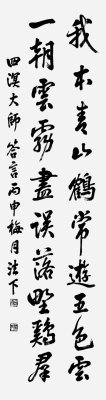 我本青山鶴常遊五色雲
一朝雲霧盡誤落野鷄群
四溟大師答言丙申梅月法下